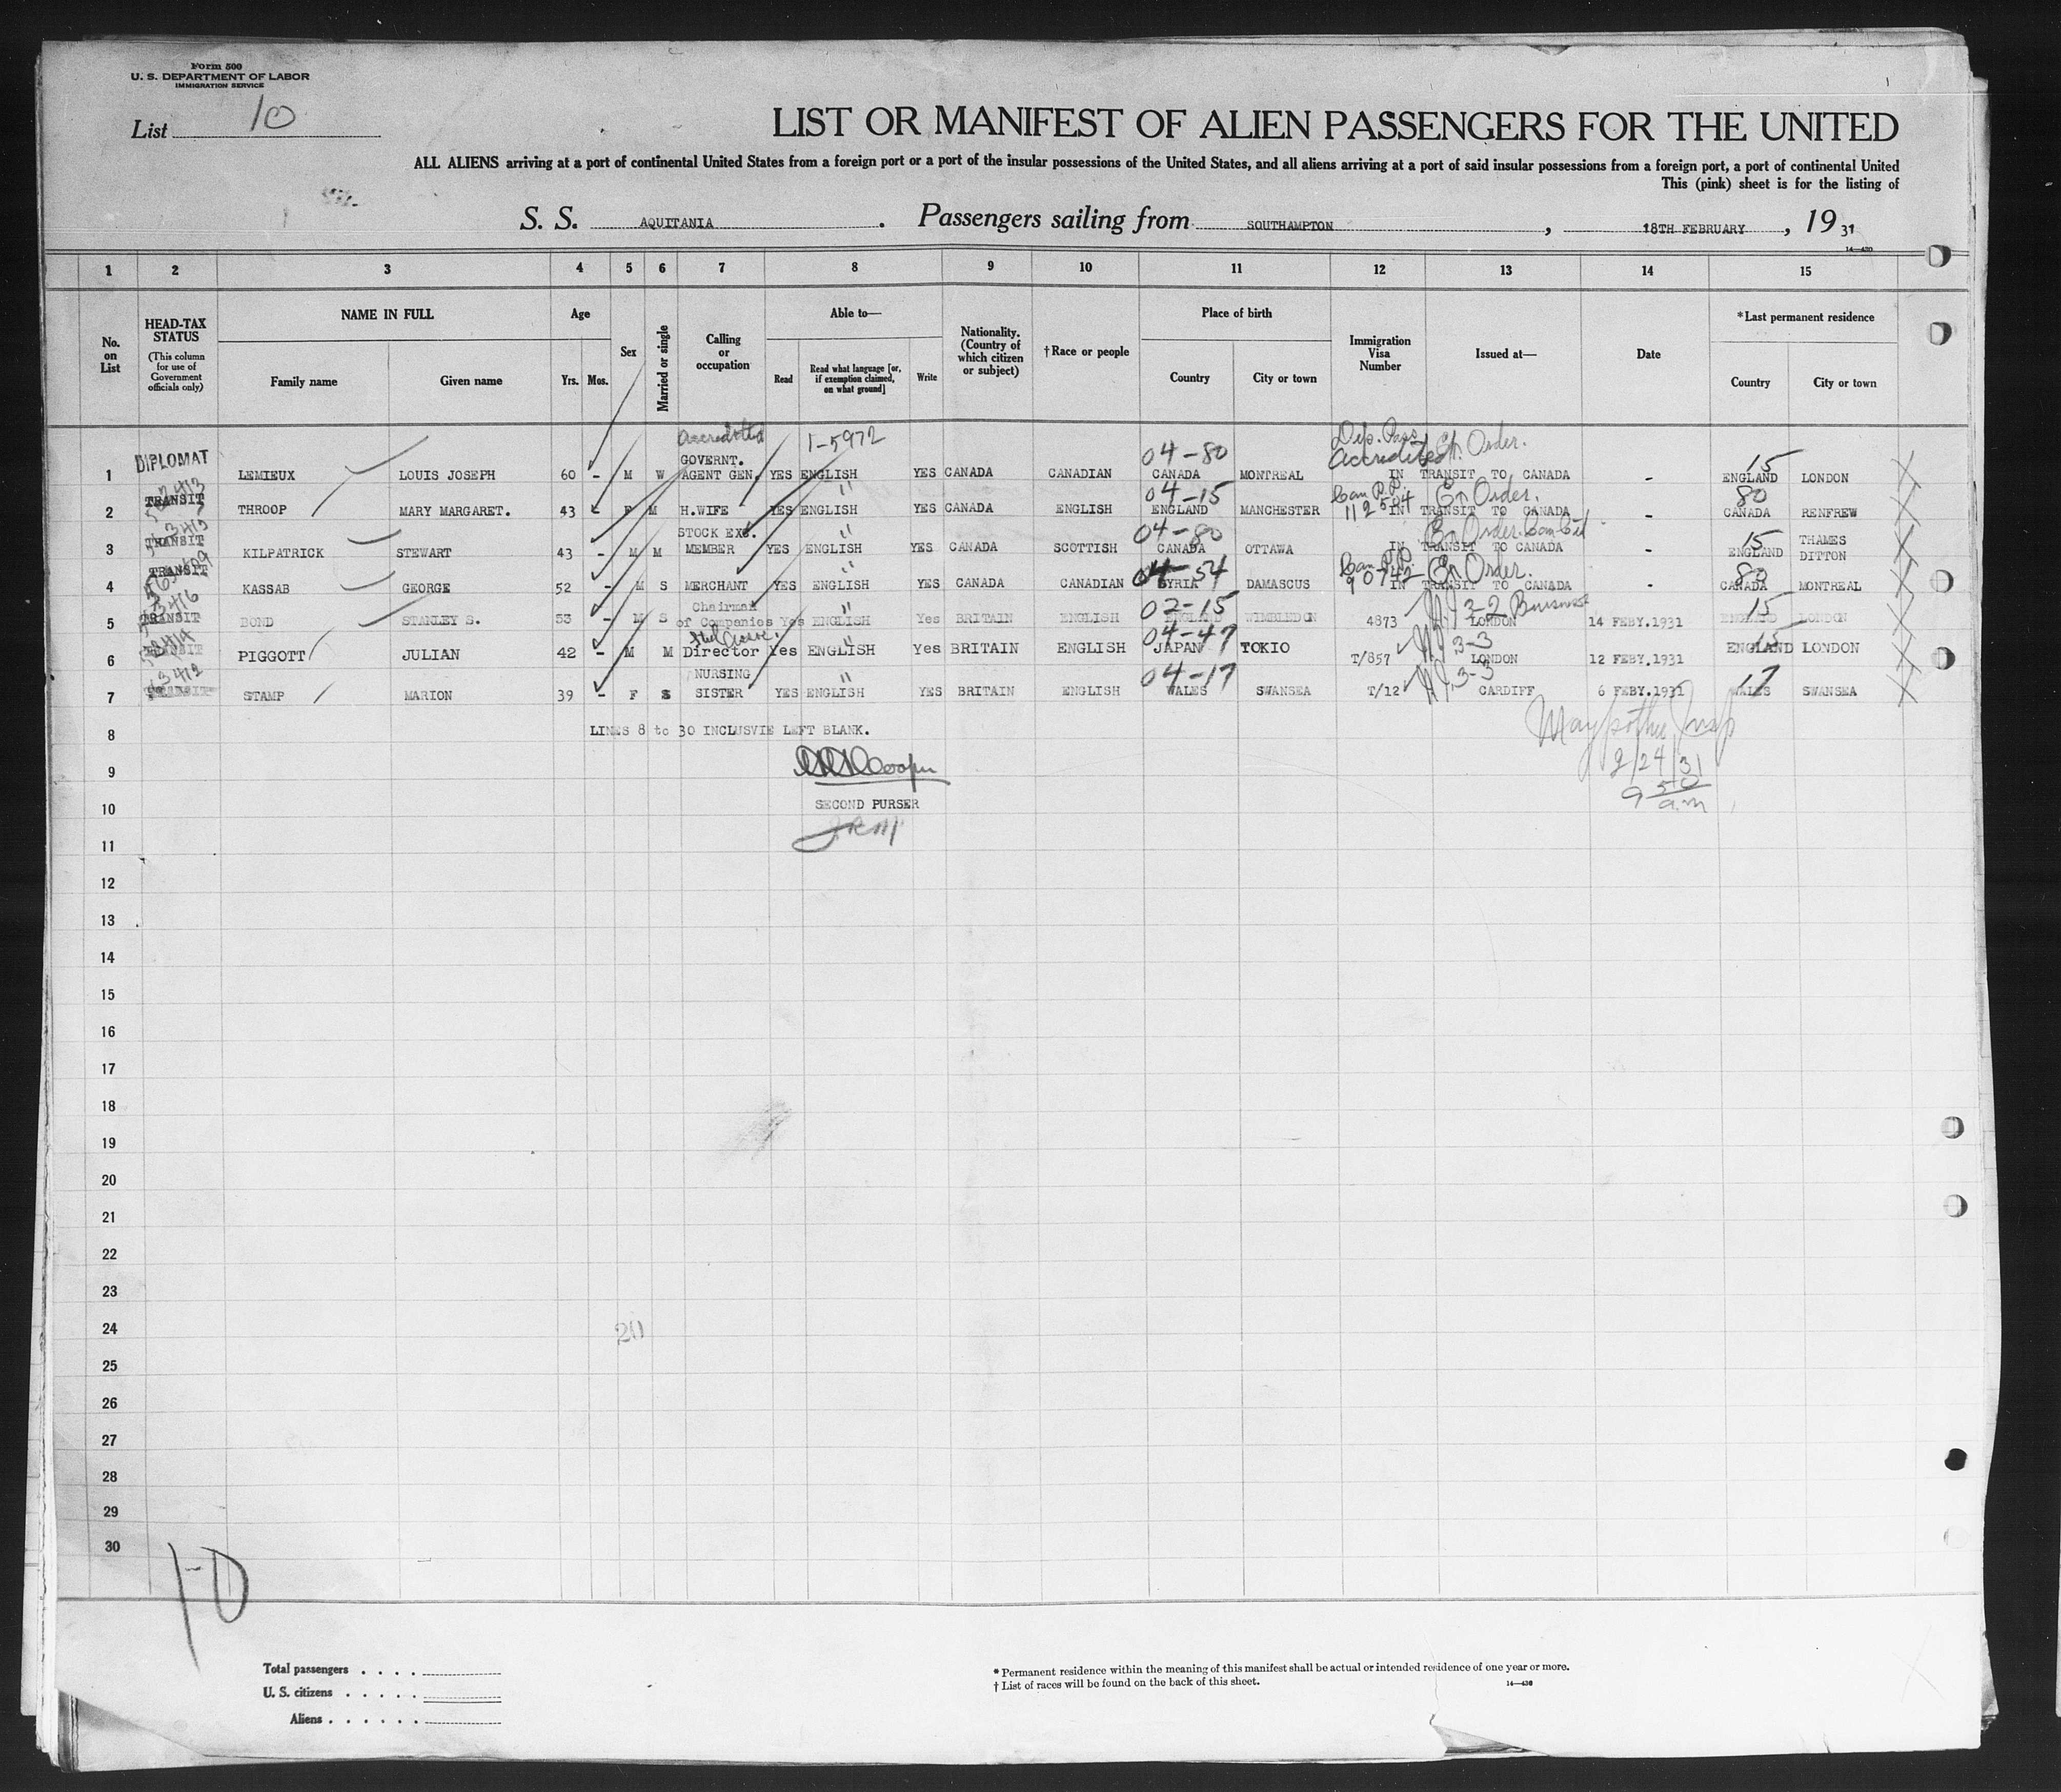 Form 500
U. S. DEPARTMENT OF LABOR
IMMIGRATION SERVICE
List 10
LIST OR MANIFEST OF ALIEN PASSENGERS FOR THE UNITED
ALL ALIENS arriving at a port of continental United States from a foreign port or a port of the insular possessions of the United States, and all aliens arriving at a port of said insular possessions from a foreign port, a port of continental United
This (pink) sheet is for the listing of
S. S. AQUITANIA . Passengers sailing from SOUTHAMPTON , 18TH FEBRUARY , 19 31
14—430
1 2 3 4 5 6 7 8 9 10 11 12 13 14 15
No. on List
HEAD-TAX STATUS (This column for use of Government officials only)
NAME IN FULL Family name Given name
Age Yrs. Mos.
Sex
Married or single
Calling or occupation
Able to— Read Read what language [or, if exemption claimed, on what ground] Write
Nationality. (Country of which citizen or subject)
† Race or people
Place of birth Country City or town
Immigration Visa Number
Issued at—
Date
*Last permanent residence Country City or town
Accredited 1-5972 04-80 Dip. Pass. Accredited Ex. Order. 15
1 DIPLOMAT LEMIEUX LOUIS JOSEPH 60 - M W GOVERNT. AGENT GEN. YES ENGLISH YES CANADA CANADIAN CANADA MONTREAL IN TRANSIT TO CANADA - ENGLAND LONDON
" 04-15 Can P.P. 112504 Ex Order. 80
2 TRANSIT THROOP MARY MARGARET. 43 F M H.WIFE YES ENGLISH YES CANADA ENGLISH ENGLAND MANCHESTER IN TRANSIT TO CANADA - CANADA RENFREW
" 04-80 Ex Order. 15
3 TRANSIT KILPATRICK STEWART 43 - M M STOCK EXC. MEMBER YES ENGLISH YES CANADA SCOTTISH CANADA OTTAWA IN TRANSIT TO CANADA - ENGLAND THAMES DITTON
" 04-54 Can P.P. 90742 Ex Order. 80
4 TRANSIT KASSAB GEORGE 52 - M S MERCHANT YES ENGLISH YES CANADA CANADIAN SYRIA DAMASCUS IN TRANSIT TO CANADA - CANADA MONTREAL
" 02-15 3-2 Business 15
5 TRANSIT BOND STANLEY S. 53 - M S Chairman of Companies Yes ENGLISH Yes BRITAIN ENGLISH ENGLAND WIMBLEDON 4873 LONDON 14 FEBY.1931 ENGLAND LONDON
" 04-47 3-3 15
6 TRANSIT PIGGOTT JULIAN 42 - M M Director Yes ENGLISH Yes BRITAIN ENGLISH JAPAN TOKIO T/857 LONDON 12 FEBY.1931 ENGLAND LONDON
" 04-17 3-3 17
7 TRANSIT STAMP MARION 39 - F S NURSING SISTER YES ENGLISH YES BRITAIN ENGLISH WALES SWANSEA T/12 CARDIFF 6 FEBY.1931 WALES SWANSEA
8 LINES 8 to 30 INCLUSVIE LEFT BLANK.
9 Cooper 2/24/31
10 SECOND PURSER 9 50 a.m
11
12
13
14
15
16
17
18
19
20
21
22
23
24
25
26
27
28
29
30
10
Total passengers . . . .
U. S. citizens . . . . .
Aliens . . . . . .
* Permanent residence within the meaning of this manifest shall be actual or intended residence of one year or more.
† List of races will be found on the back of this sheet.
14—430